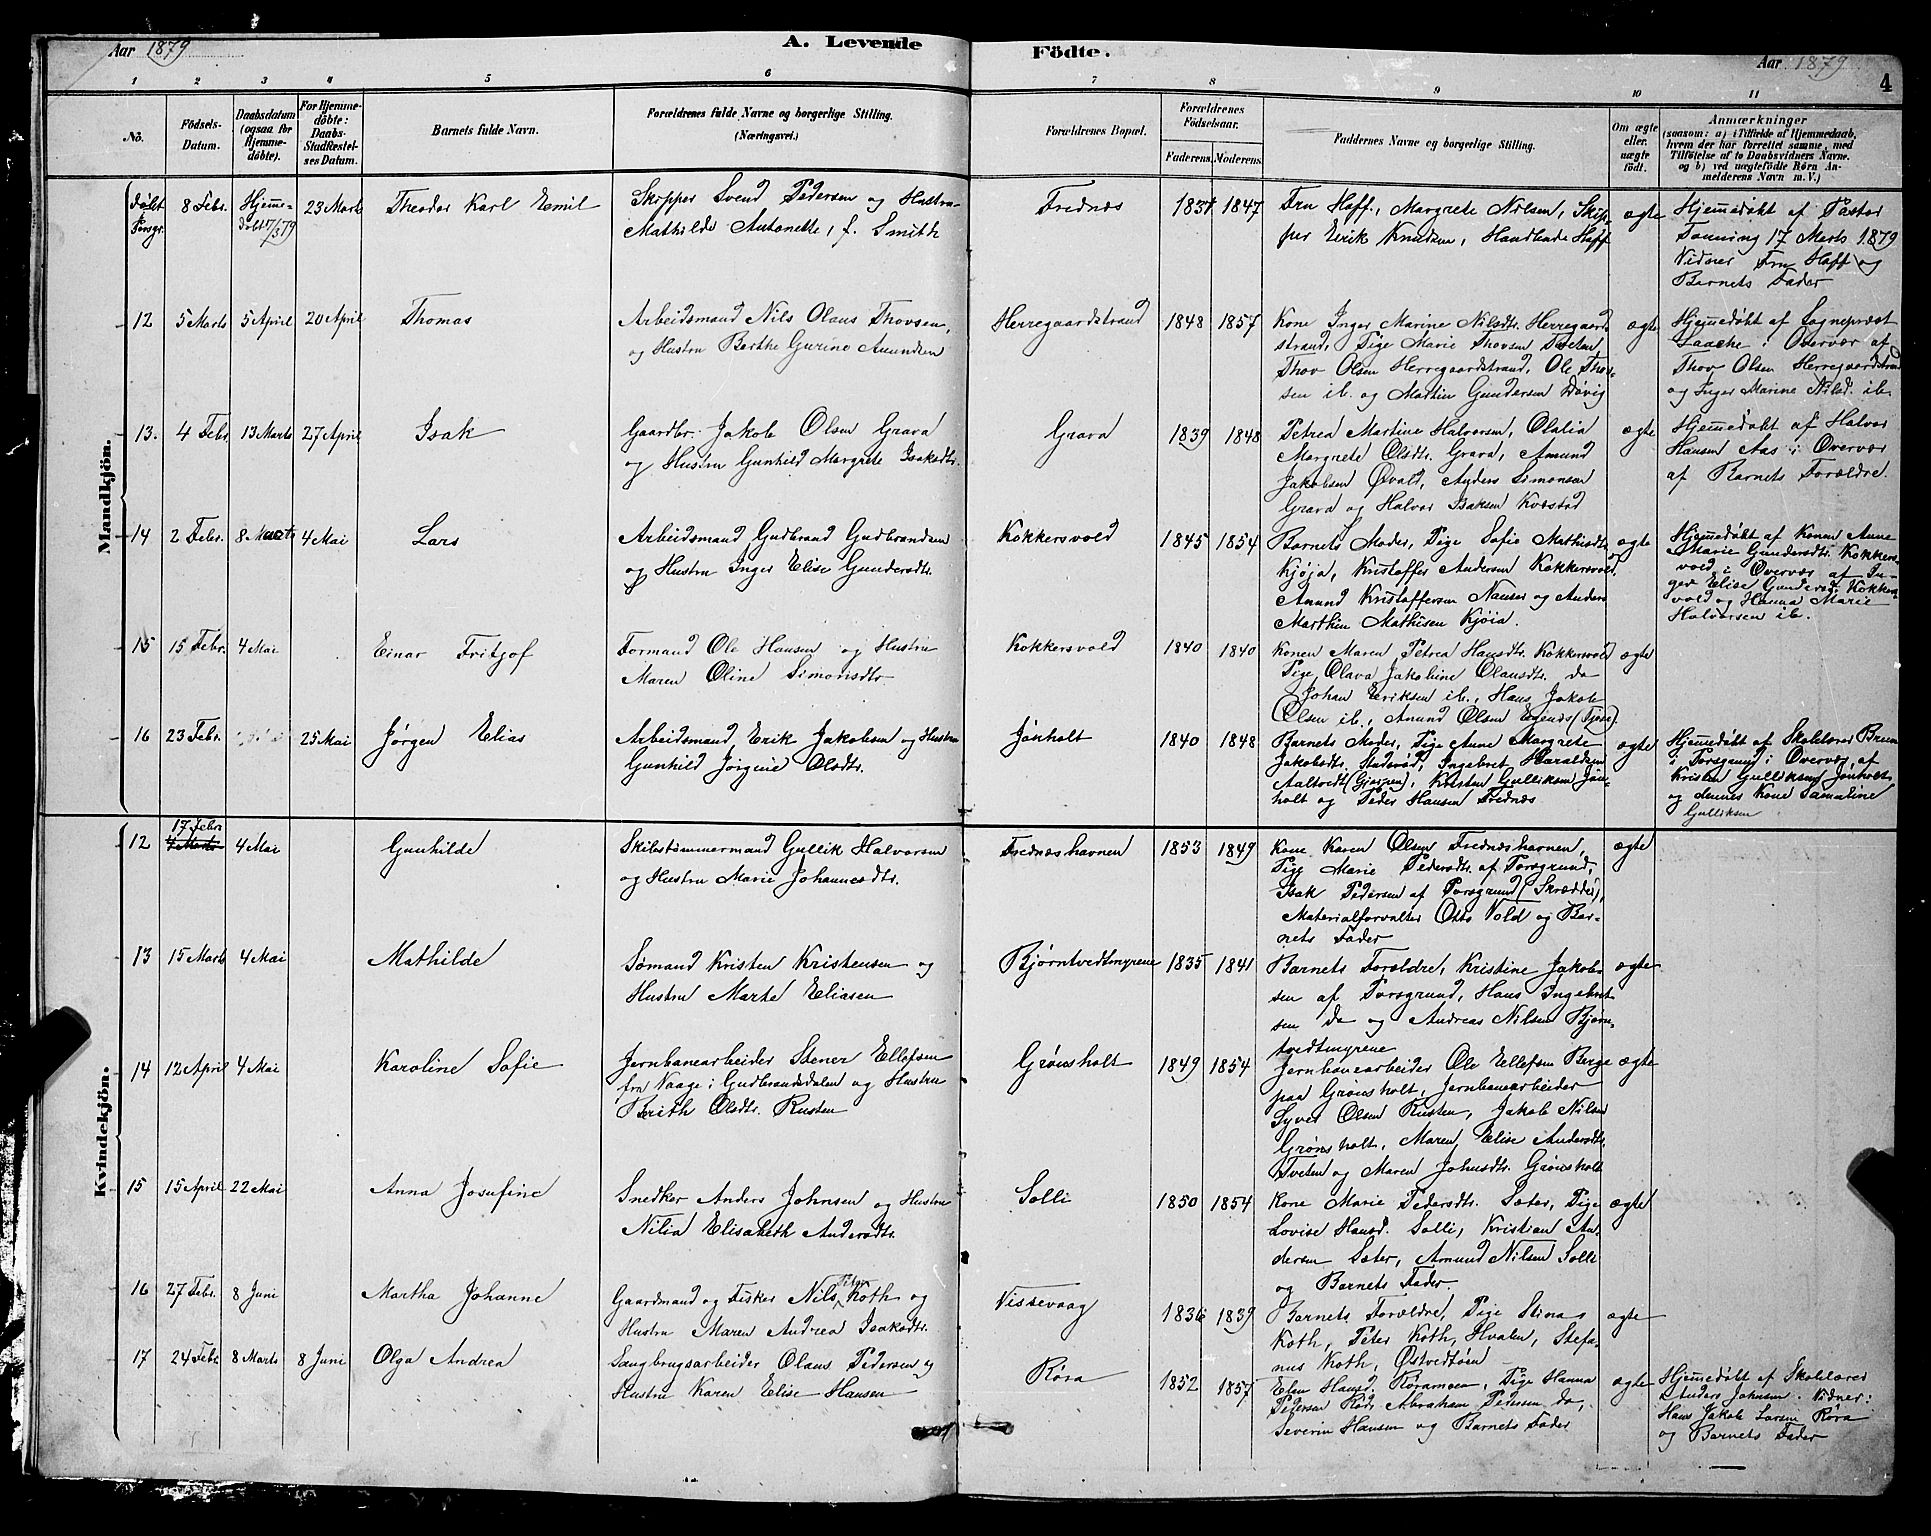 Aar 1879
A. Levende
Födte.
Aar 1879
4
1 2 3 4 5 6 7 8 9 10 11
Nö.
Födsels-Datum.
Daabsdatum (ogsaa for Hjemme-döbte).
For Hjemme-döbte: Daabs-Stadfæstel-ses Datum.
Barnets fulde Navn.
Forældrenes fulde Navne og borgerlige Stilling.
(Næringsvei.)
Forældrenes Bopæl.
Forældrenes Födselsaar.
Faderens. Moderens.
Faddernes Navne og borgerlige Stilling.
Om ægte eller. uægte födt.
Anmærkninger
(saasom: a) i Tilfælde af Hjemmedaab,
hvem der har forrettet samme, med
Tilföielse af to Daabsvidners Navne.
og b) ved uægtefödte Börn An-
melderens Navn m. V.)
Mandkjön.
Porsgr.
8 Febr.
Hjeme-
23 Marts
Theodor Karl Emil
Skipper Svend Pedersen og Hustru
Mathilde Antonette, f. Smith
Frednæs
1831 1847
Fru Hoff, Margrete Nilsen, Skip-
per Erik Knudsen, Handlende Hoff
ægte
Hjemedøbt af Pastor
Tønning 17 Marts 1879
Vidner Fru Hoff og
Barnets Fader
12
5 Marts
5 April
20 April
Thomas
Arbeidsmand Nils Olaus Thovsen,
og Hustru Berthe Gurine Amundsen
Herregaardstrand
1848 1857
Kone Inger Marine Nilsdtr. Herregaard
strand, Pige Marie Thovsen Tveten
Thov Olsen Herregaardstrand, Ole Thov-
sen ib. og Martin Gundersen Døvig
ægte
Hjemedøbt af Sognepræst
Laache i Overvær af
Thov Olsen Herregaardstrand
og Inger Marine Nilsd. ib.
13.
4 Febr
13 Marts
27 April
Isak
Gaardbr. Jakob Olsen Grava
og Hustru Gunhild Margrete Isaksdtr.
Grava
1839 1848
Petrea Martine Halvorsen, Olalia
Margrete Olsdtr. Grava, Amund
Jakobsen Øvald, Anders Simonsen
Grava og Halvor Isaksen Kvæstad
ægte
Hjemedøbt af Halvor
Hansen Aas i Overvær
af Barnets Forældre.
14
2 Febr.
8 Marts
4 Mai
Lars
Arbeidsmand Gudbrand Gudbrandsen
og Hustru Inger Elise Gundersdtr.
Kokkersvold
1845 1854
Barnets Moder, Pige Sofie Mathisdtr
Kjøja, Kristoffer Andersen Kokkersvold,
Amund Kristoffersen Nauser og Anders
Marthin Mathisen Kjøia.
ægte
Hjemedøbt af Konen Anne
Marie Gundersdtr. Kokkers-
vold i Overvær af In-
ger Elise Gundersd. Kokkers-
vold og Hanna Marie
Halvorsen ib.
15
15 Febr.
4 Mai
Einar Fritjof
Formand Ole Hansen og Hustru
Maren Oline Simonsdtr
Kokkersvold
1840 1840
Konen Maren Petrea Hansdtr. Kokkersvold
Pige Olava Jakobine Olausdtr. do
Johan Eriksen ib., Hans Jakob
Olsen ib., Anund Olsen
ægte
16
23 Febr.
25 Mai
Jørgen Elias
Arbeidsmand Erik Jakobsen og Hustru
Gunhild Jørgine Olsdtr.
Jønholt
1840 1848
Barnets Moder, Pige Anne Margrete
Jakobsdtr. Stulsrød, Ingebret Haraldsen
Aaltvedt (Gjerpen), Kristen Gulliksen Jøn-
holt og Peder Hansen Frednæs
ægte
Hjemedøbt af Skolelærer Bruun
i Porsgrund i Overvær af
Kristen Gulliksen Jønholt
og dennes Kone Samuline
Gulliksen
Kvindekjön.
12
17 Febr
4 Marts
4 Mai
Gunhilde
Skibstømmermand Gullik Halvorsen
og Hustru Marie Johannesdtr.
Frednæshavnen
1853 1849
Kone Karen Olsen Frednæshavnen,
Pige Marie Pedersdtr. af Porsgrund,
Isak Pedersen af Porsgrund (Skrædder),
Materialforvalter Otto Vold og Bar-
nets Fader
ægte
13
15 Marts
4 Mai
Mathilde
Sømand Kristen Kristensen og
Hustru Marte Eliasen
Bjørntvedtmyrene
1835 1841
Barnets Forældre, Kristine Jakob-
sen af Porsgrund, Hans Ingebret
sen do og Andreas Nilsen Bjørn-
tvedtmyrene
ægte
14
12 April
4 Mai
Karoline Sofie
Jernbanearbeider Stener Ellefsen
fra Vaage i Gudbrandsdalen og Hustru
Berith Olsdtr. Rusten
Grønsholt
1849 1854
Jernbanearbeider Ole Ellefsen Berge
paa Grønsholt, Jernbanearbeider
Syver Olsen Rusten, Jakob Nilsen
Grønsholt, Maren Elise Andersdtr.
Tveten og Maren Johnsdtr. Grønsholt
ægte
15
15 April
22 Mai
Anna Josefine
Snedker Anders Johnsen og Hustru
Nilia Elisabeth Andersdtr.
Solli
1850 1854
Kone Marie Pedersdtr. Sæter, Pige
Lovise Hansd. Solli, Kristian An-
dersen Sæter, Amund Nilsen Solli
og Barnets Fader.
ægte
16
27 Febr.
8 Juni
Martha Johanne
Gaardmand og Fisker Nils Peter Koth og
Hustru Maren Andrea Isaksdtr.
Vissevaag
1836 1839
Barnets Forældre, Pige Stina
Koth, Peter Koth, Hvalen, Stefa-
nus Koth, Østvedtøen
ægte
17
24 Febr
8 Marts
8 Juni
Olga Andrea
Saugbrugsarbeider Olaus Pedersen og
Hustru Karen Elise Hansen
Røra
1852 1857
Elen Hansd. Røramoen, Pige Hanna
Pedersen Rød, Abraham Pedersen do,
Severin Hansen og Barnets Fader
ægte
Hjemedøbt af Skolelærer
Anders Johnsen. Vidner:
Hans Jakob Larsen Røra
og Barnets Fader